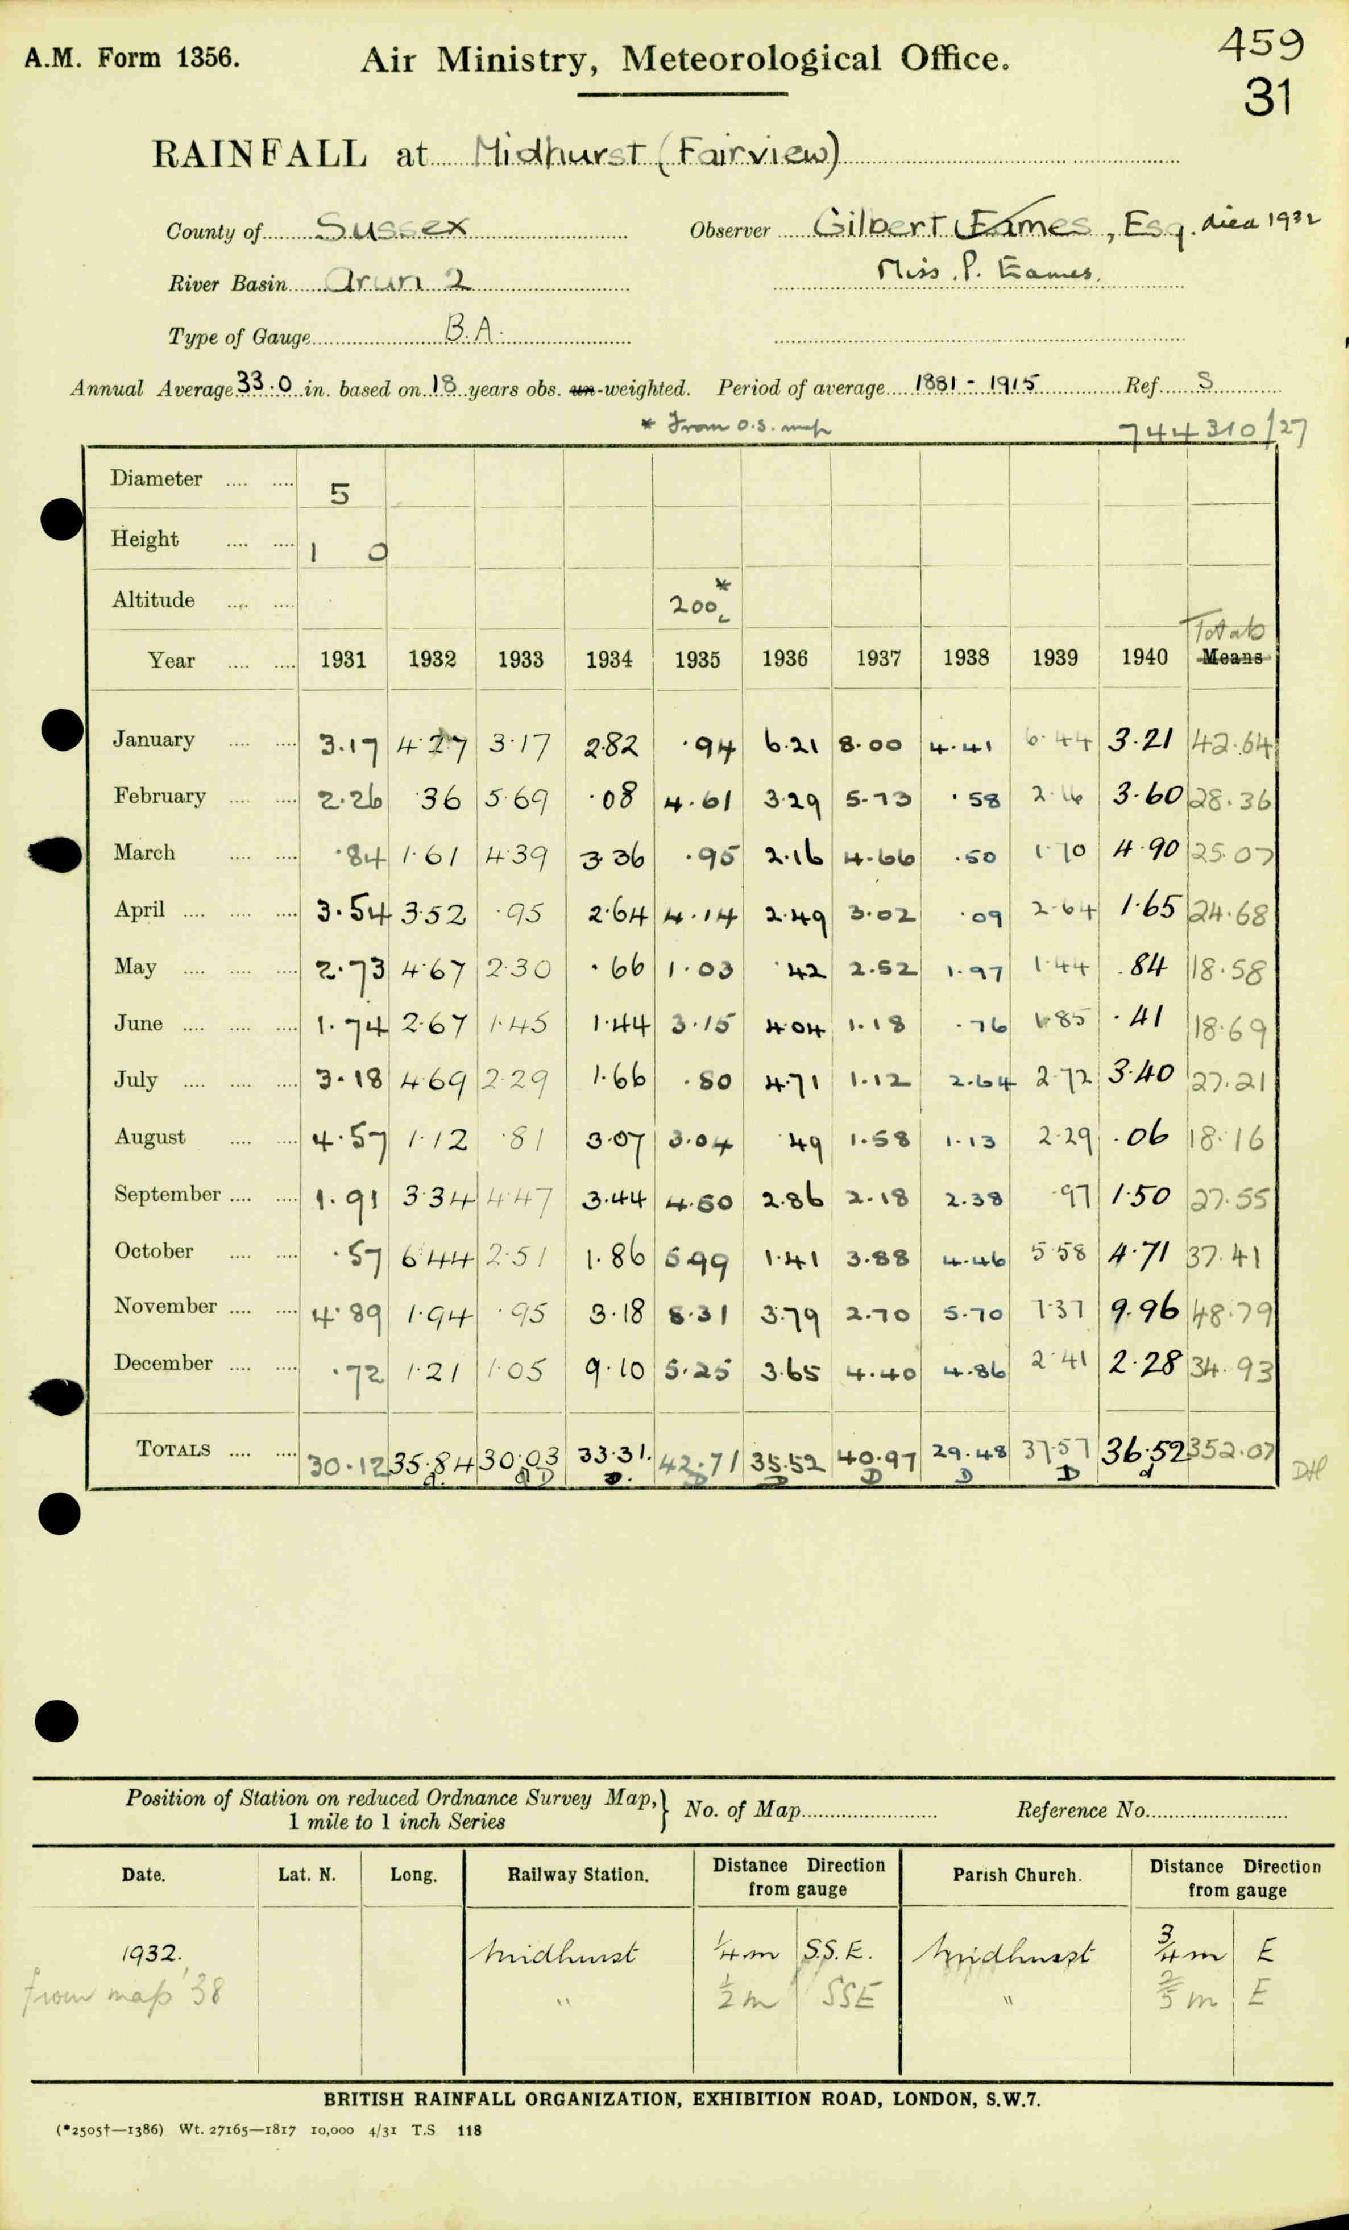 A.M. Form 1356.
Air Ministry, Meteorological Office.
459
31
RAINFALL at Midhurst (Fairview)
County of Sussex Observer Gilbert Eames, Esq. died 1932
River Basin Arun 2 Miss. P. Eames.
Type of Gauge B.A.
Annual Average 33.0 in. based on 18 years obs. un-weighted. Period of average 1881 - 1915 Ref. S
* From O.S. map 744310/27
Diameter 5
Height 1 0
Altitude 200c *
Totals
Year 1931 1932 1933 1934 1935 1936 1937 1938 1939 1940 Means
January 3.17 4.27 3.17 2.82 .94 6.21 8.00 4.41 6.44 3.21 42.64
February 2.26 .36 5.69 .08 4.61 3.29 5.73 .58 2.16 3.60 28.36
March .84 1.61 4.39 3.36 .95 2.16 4.66 .50 1.70 4.90 25.07
April 3.54 3.52 .95 2.64 4.14 2.49 3.02 .09 2.64 1.65 24.68
May 2.73 4.67 2.30 .66 1.03 .42 2.52 1.97 1.44 .84 18.58
June 1.74 2.67 1.45 1.44 3.15 4.04 1.18 .76 1.85 .41 18.69
July 3.18 4.69 2.29 1.66 .80 4.71 1.12 2.64 2.72 3.40 27.21
August 4.57 1.12 .81 3.07 3.04 .49 1.58 1.13 2.29 .06 18.16
September 1.91 3.34 4.47 3.44 4.50 2.86 2.18 2.38 .97 1.50 27.55
October .57 6.44 2.51 1.86 5.99 1.41 3.88 4.46 5.58 4.71 37.41
November 4.89 1.94 .95 3.18 8.31 3.79 2.70 5.70 7.37 9.96 48.79
December .72 1.21 1.05 9.10 5.25 3.65 4.40 4.86 2.41 2.28 34.93
TOTALS 30.12 35.84 30.03 33.31. 42.71 35.52 40.97 29.48 37.57 36.52 352.07
d. d D D. D D D D D d DH
Position of Station on reduced Ordnance Survey Map, 1 mile to 1 inch Series } No. of Map Reference No.
Date. Lat. N. Long. Railway Station. Distance Direction from gauge Parish Church. Distance Direction from gauge
1932. Midhurst 1/4 m S.S.E. Midhurst 3/4 m E
from map '38 " 1/2 m SSE " 2/5 m E
BRITISH RAINFALL ORGANIZATION, EXHIBITION ROAD, LONDON, S.W.7.
(*2505†—1386) Wt. 27165—1817 10,000 4/31 T.S 118